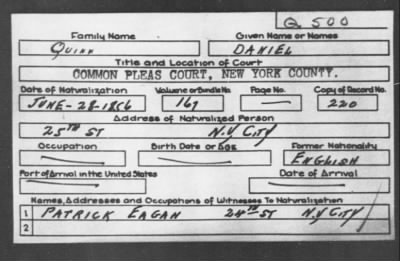 Q 500
Family Name Given Name or Names
QUINN DANIEL
Title and Location of Court
COMMON PLEAS COURT, NEW YORK COUNTY.
Date of Naturalization Volume or Bundle No. Page No. Copy of Record No.
JUNE-28-1866 167 220
Address of Naturalized Person
25TH ST N.Y CITY
Occupation Birth Date or Age Former Nationality
ENGLISH
Port of Arrival in the United States Date of Arrival
Names, Addresses and Occupations of Witnesses To Naturalization
1 PATRICK EAGAN 24TH ST N.Y CITY
2